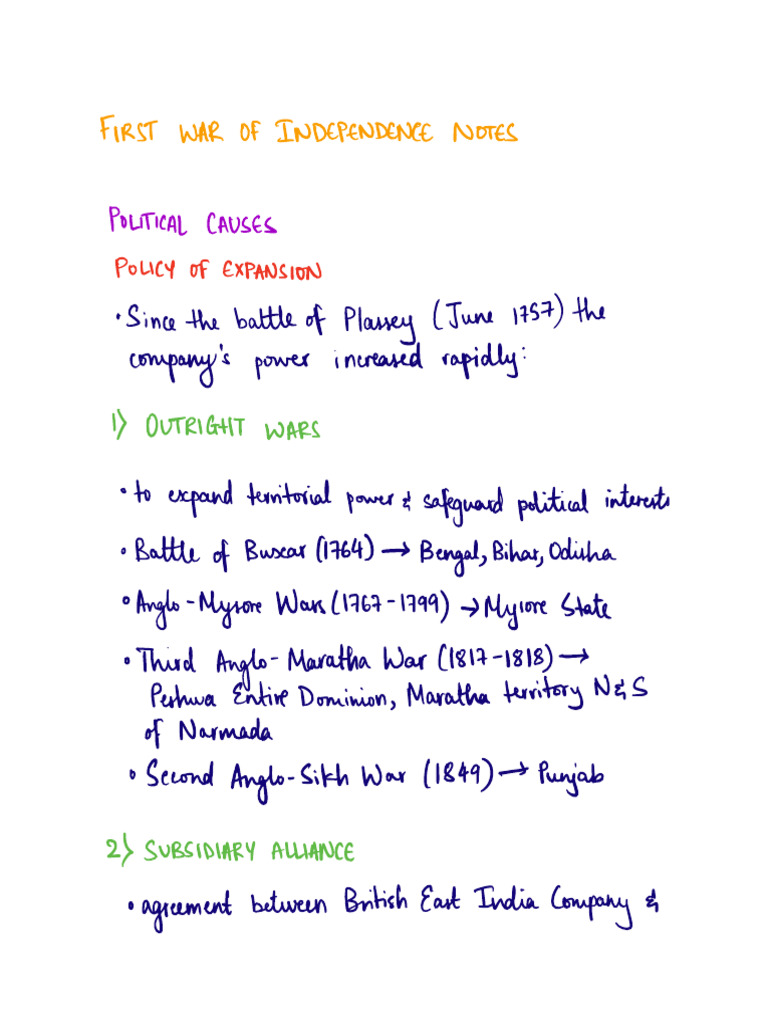 FIRST WAR OF INDEPENDENCE NOTES
POLITICAL CAUSES
POLICY OF EXPANSION
• Since the battle of Plassey (June 1757) the
company's power increased rapidly:
1) OUTRIGHT WARS
• to expand territorial power & safeguard political interests
• Battle of Buxar (1764) → Bengal, Bihar, Odisha
• Anglo-Mysore Wars (1767-1799) → Mysore State
• Third Anglo-Maratha War (1817-1818) →
Peshwa Entire Dominion, Maratha territory N & S
of Narmada
• Second Anglo-Sikh War (1849) → Punjab
2) SUBSIDIARY ALLIANCE
• agreement between British East India Company &